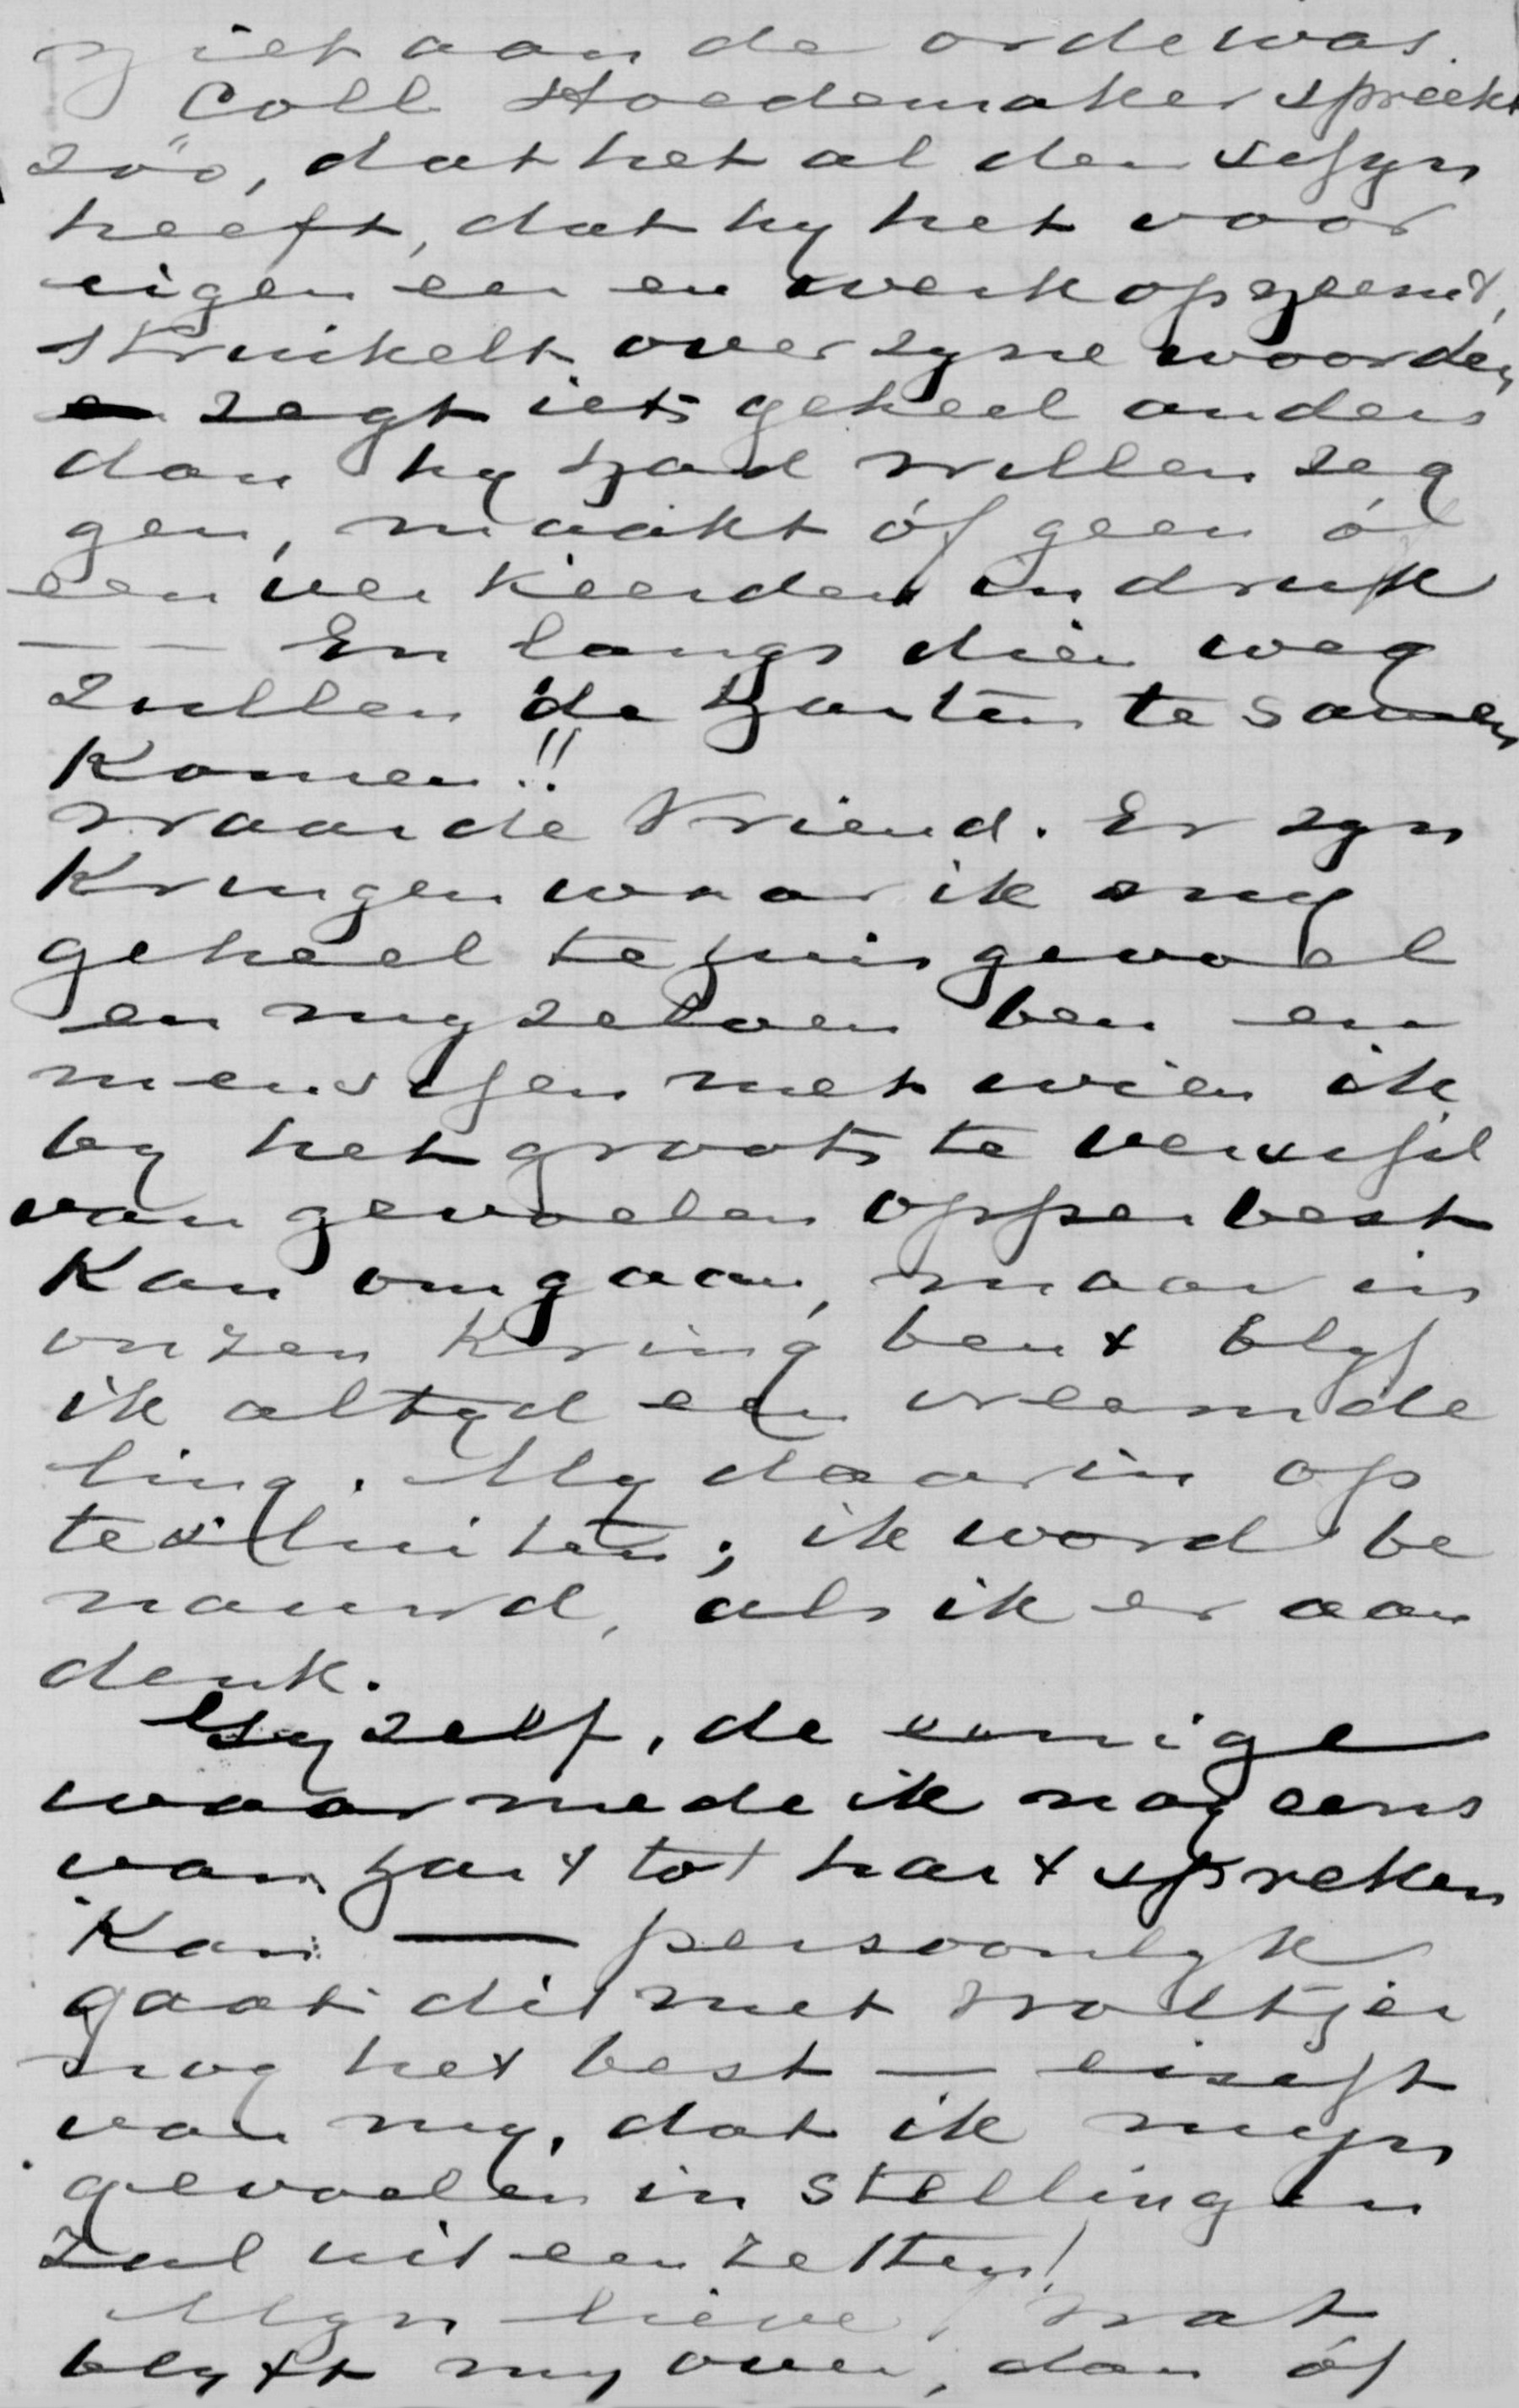 niet aan de orde was.
Coll Hoedemaker spreekt
zóó, dat het al den schyn
heeft, dat hy het voor
eigen eer en werk opneemt,
struikelt over zyne woorden
zegt iets geheel anders
dan hy had willen zeg
gen, maakt óf geen óf
een verkeerden indruk
— — En langs dien weg
zullen de harten te samen
komen!!
Waarde Vriend. Er zyn
kringen waar ik my
geheel te huis gevoel
en myzelven ben en
menschen met wien ik
by het grootste verschil
van gevoelen opperbest
kan omgaan, maar in
onzen kring ben & blyf
ik altyd een vreemde
ling. My daarin op
te sluiten; ik word be
nauwd, als ik er aan
denk.
Gyzelf, de eenige
waarmede ik nog eens
van hart tot hart spreken
kan — persoonlyk
gaat dit met Woltjer
nog het best — eischt
van my, dat ik myn
gevoelen in stellingen
zal uiteenzetten!
Myn lieve, wat
blyft my over, dan óf